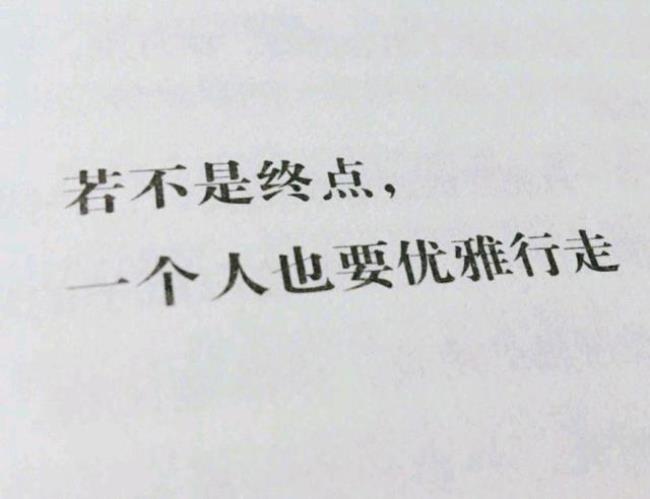 若不是终点，
一个人也要优雅行走